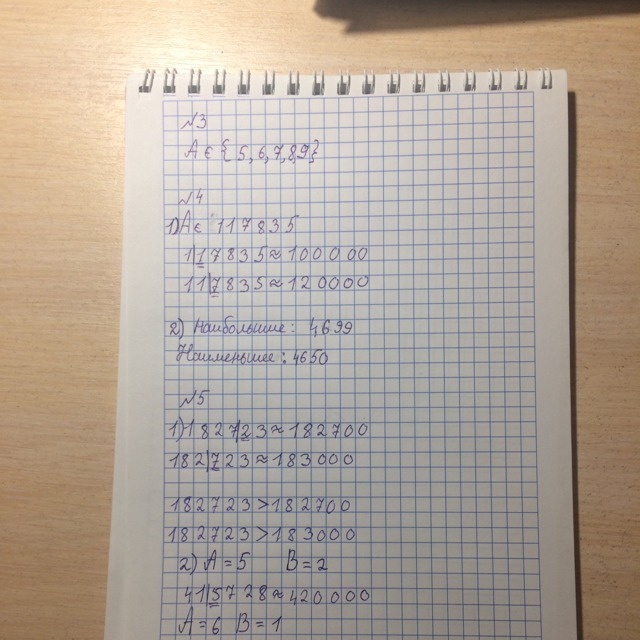 №3
A є {5,6,7,8,9}
№4
1) A є 117835
1|17835≈100000
11|7835≈120000
2) Наибольшие: 4699
Наименьшее: 4650
№5
1) 1827|23≈182700
182|723≈183000
182723>182700
182723>183000
2) A=5 B=2
41|5728≈420000
A=6 B=1